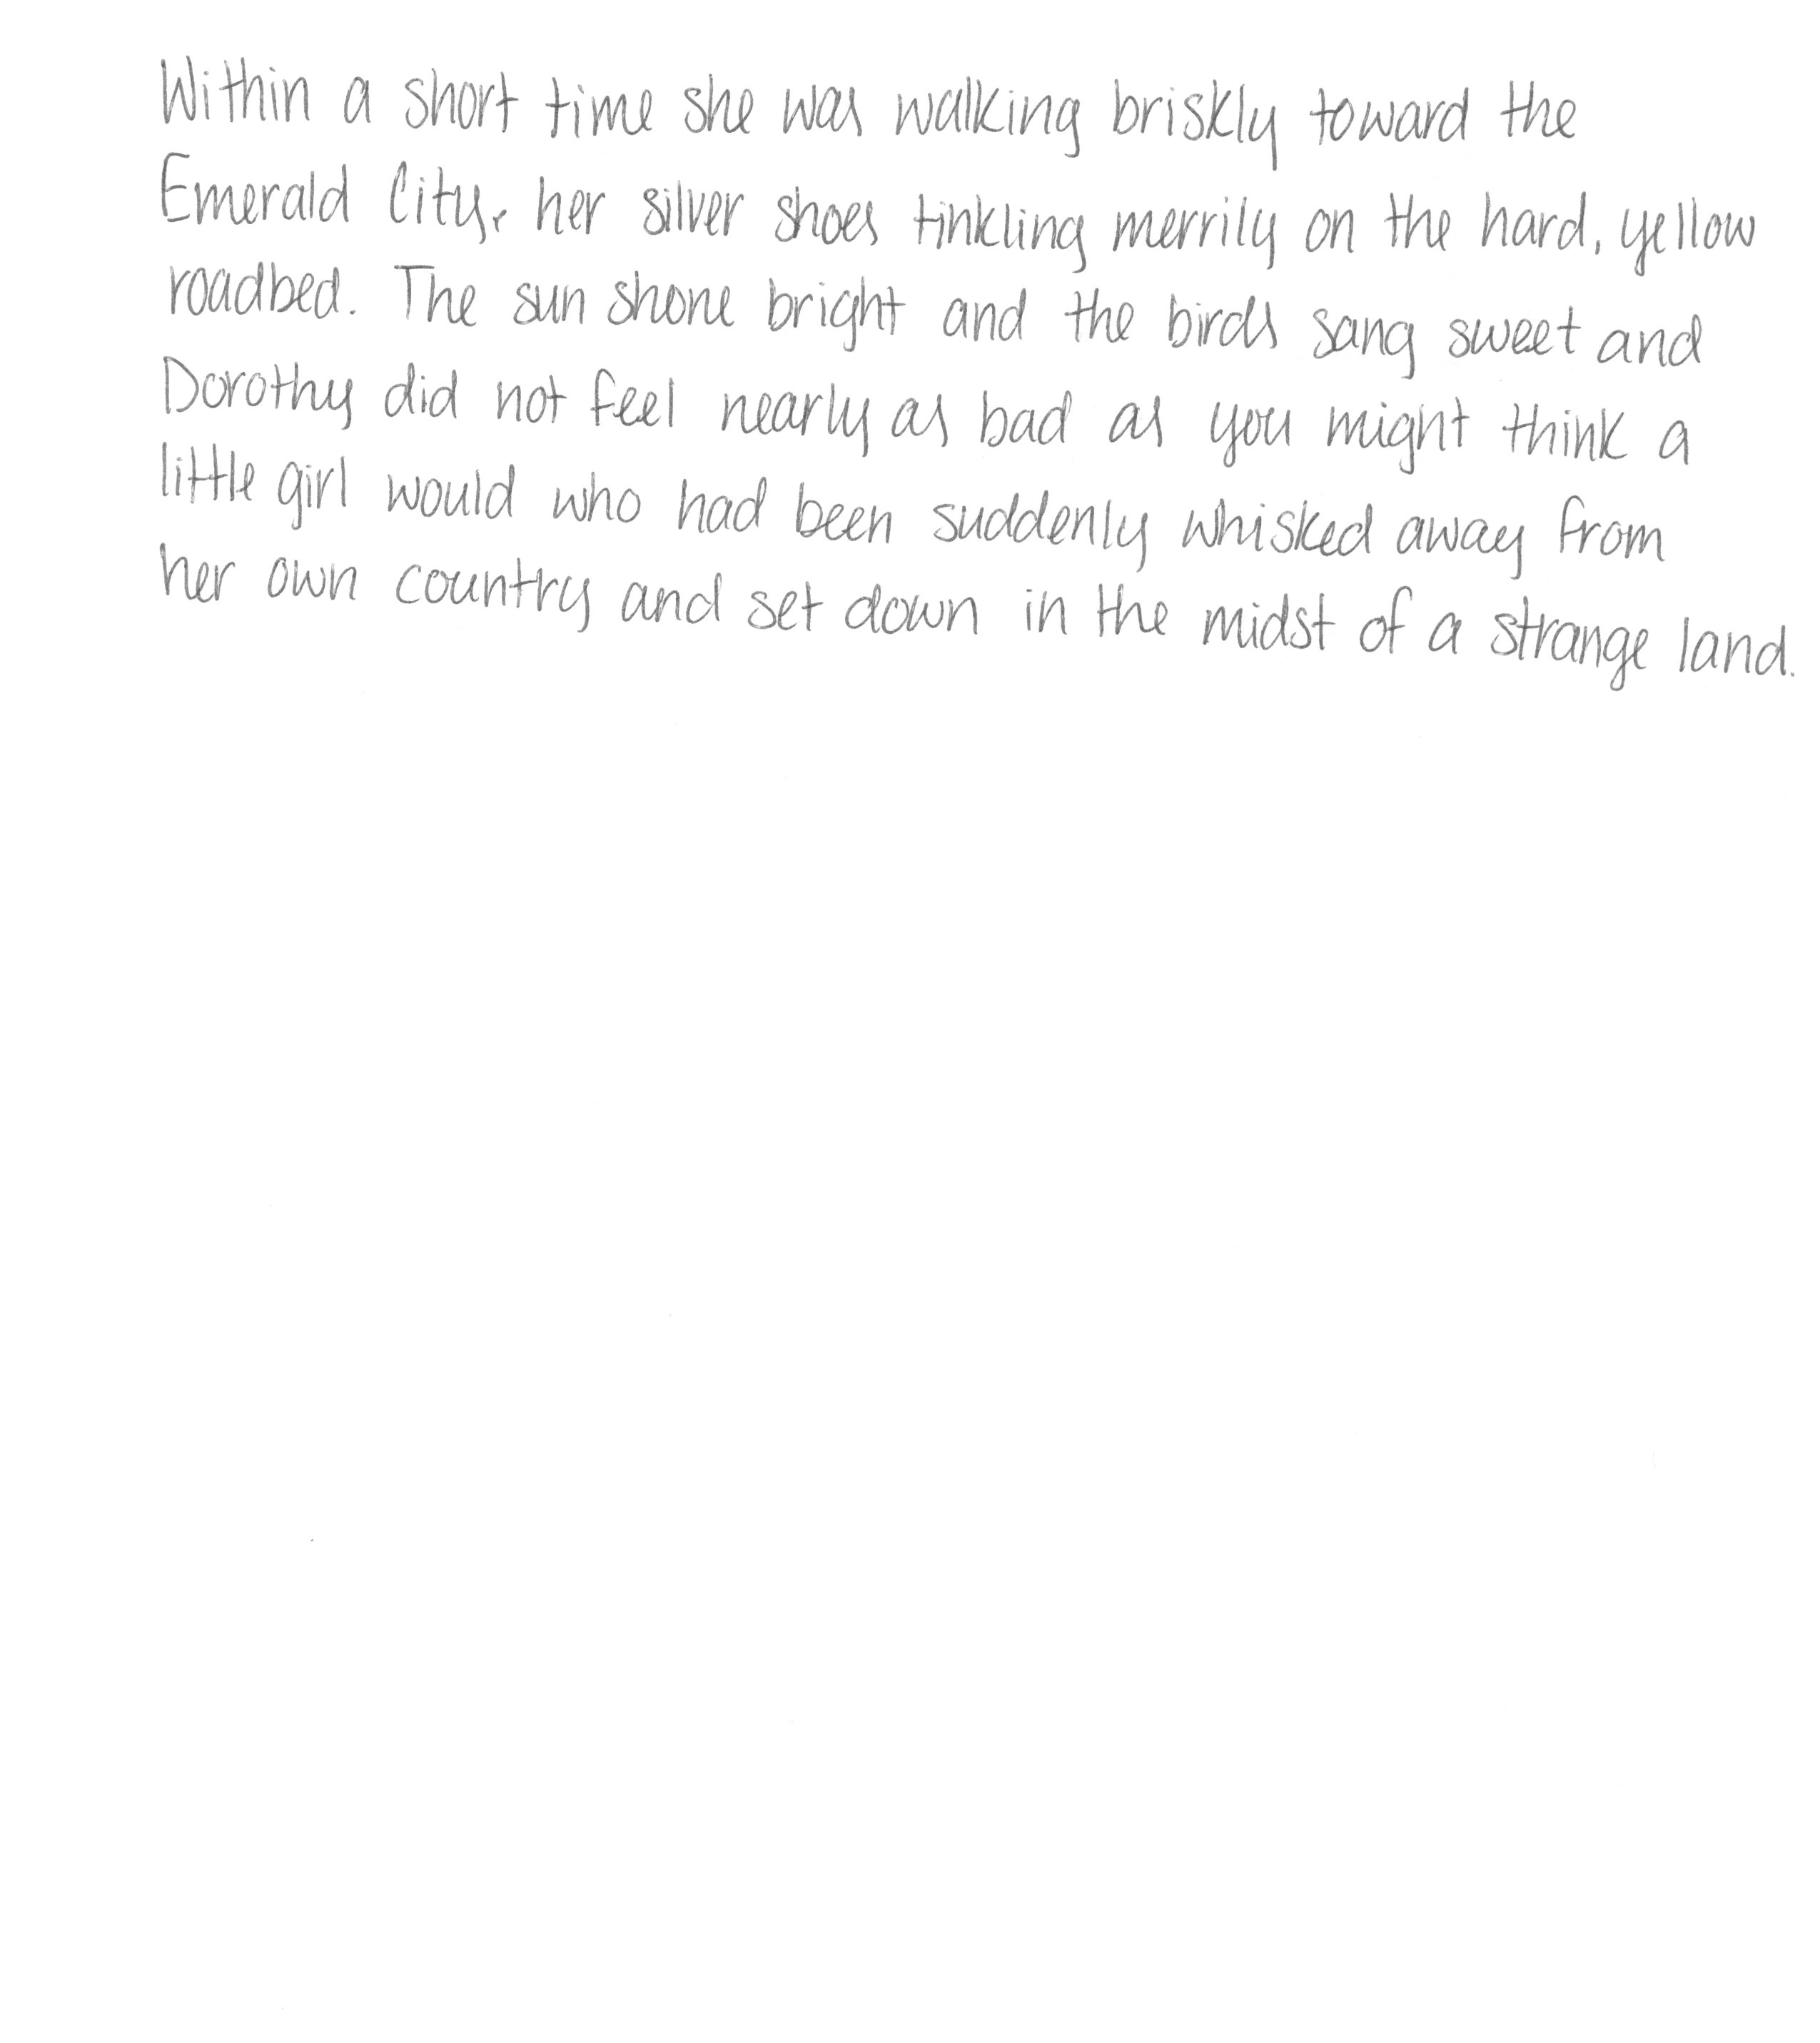 Within a short time she was walking briskly toward the
Emerald City, her silver shoes tinkling merrily on the hard, yellow
roadbed. The sun shone bright and the birds sang sweet and
Dorothy did not feel nearly as bad as you might think a
little girl would who had been suddenly whisked away from
her own country and set down in the midst of a strange land.